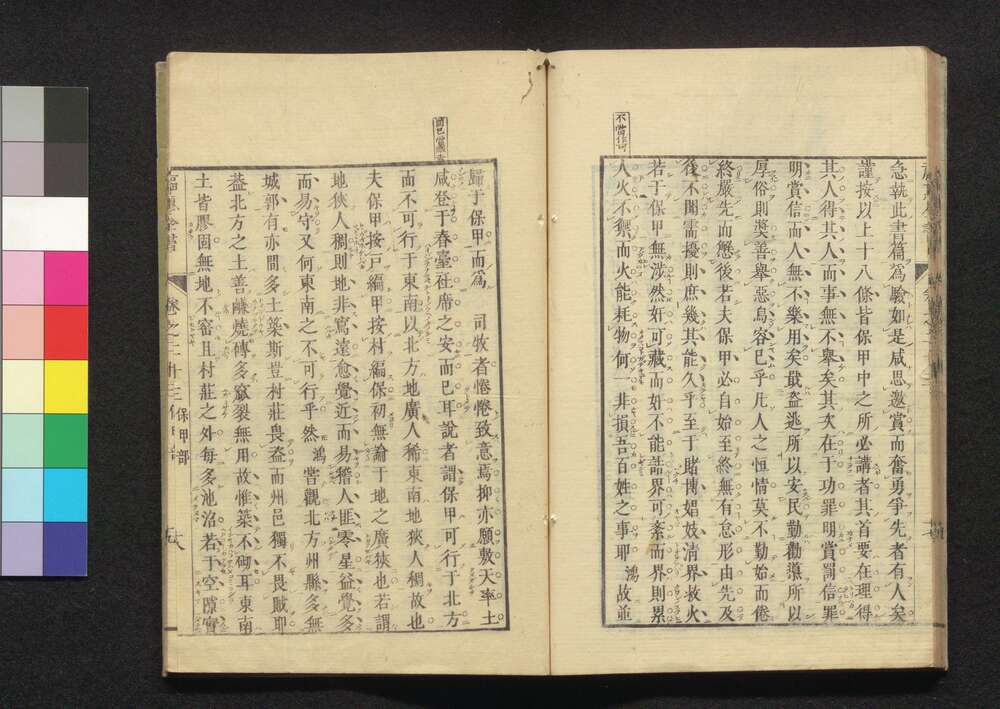 不當作何
急執此書篇爲驗如是咸思邀賞而奮勇爭先者有人矣
謹按以上十八條皆保甲中之所必講者其首要在理得
其人得其人而事無不舉矣其次在于功罪明賞罰信罪
明賞信而人無不樂用矣戢盜逃所以安民勤勸導所以
厚俗則獎善舉惡烏容已乎凡人之恒情莫不勤始而倦
終嚴先而懲後若夫保甲必自始至終無有怠形由先及
後不聞需擾則庶幾其能久乎至于賭博娼妓清界救火
若于保甲無涉然奸可藏而奸不能詰界可紊而界則累
人火不禦而火能耗物何一非損吾百姓之事耶鴻故並
歸于保甲而爲 司牧者惓惓致意焉抑亦願敷天率土
咸登于春臺袵席之安而已耳說者謂保甲可行于北方
而不可行于東南以北方地廣人稀東南地狹人稠故也
夫保甲按戸編甲按村編保初無論于地之廣狹也若謂
地狹人稠則地非寫遠愈覺近而易稽人匪零星益覺多
而易守又何東南之不可行乎然鴻嘗觀北方州縣多無
城郭有亦間多土築斯豈村莊畏盗而州邑獨不畏賊耶
蓋北方之土善鹻燒磚多窳裂無用故惟築不砌耳東南
土皆膠固無地不窑且村莊之外每多池沼若于空隙實
卷之二十三 保甲部